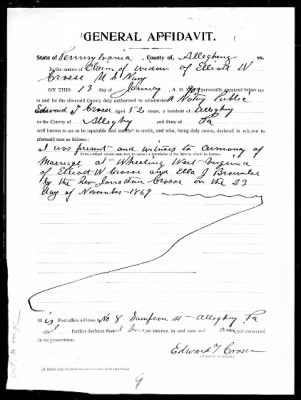 GENERAL AFFIDAVIT.
State of Pennsylvania, County of, Allegheny ss.
In the matter of Claim of widow of Elliott W
Crosse U S Navy
ON THIS 13 day of January A. D. personally appeared before me
in and for the aforesaid County duly authorized to administer Notary Public
Edward T Crosse aged 52 years, a resident of Allegheny
in the County of Alleghy and State of Pa
well known to me to be reputable and entitled to credit, and who, being duly sworn, declares in relation to
aforesaid case as follows:
I was present and witness to cermony of
Marriage at Wheeling West Virginia
of Elliott W Crosse and Ella J Brownlee
by the Rev Jonathan Crosse on the 23
day of November 1869
His Post-office address is No 8 Sampson st - Alleghy Pa
I further declares that I have no interest in said case and am not concerned
in its prosecution.
Edward T Crosse